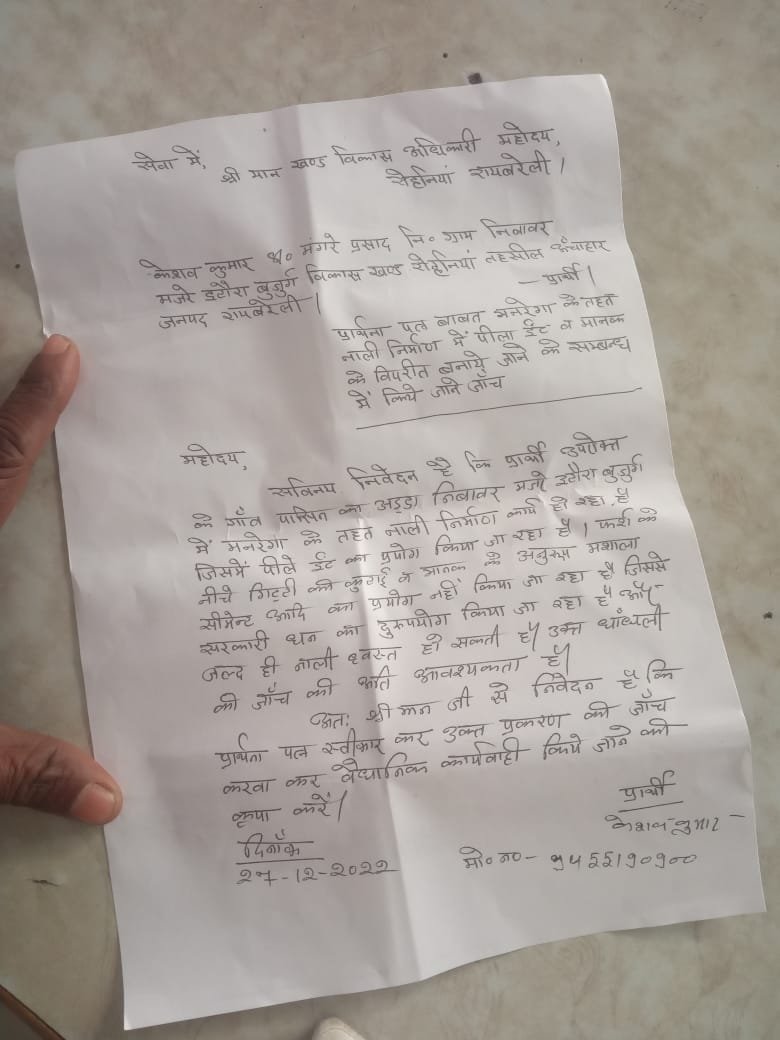 सेवा में,
श्री मान खण्ड विकास अधिकारी महोदय,
रोहनियां रायबरेली ।
केशव कुमार S/o मंगरे प्रसाद नि० ग्राम निबावर
मजरे इटौरा बुजुर्ग विकास खण्ड रोहनियां तहसील ऊँचाहार
जनपद रायबरेली । — प्रार्थी ।
प्रार्थना पत्र बाबत मनरेगा के तहत
नाली निर्माण में पीला ईंट व मानक
के विपरीत बनाये जाने के सम्बन्ध
में किये जाने जाँच
महोदय,
सविनय निवेदन है कि प्रार्थी उपरोक्त
के गाँव पासिन का अड्डा निबावर मजरे इटौरा बुजुर्ग
में मनरेगा के तहत नाली निर्माण कार्य हो रहा है
जिसमें पीले ईंट का प्रयोग किया जा रहा है । फर्श के
नीचे गिट्टी की कुटाई व मानक के अनुरूप मशाला
सीमेन्ट आदि का प्रयोग नहीं किया जा रहा है जिससे
सरकारी धन का दुरूपयोग किया जा रहा है और
जल्द ही नाली ध्वस्त हो सकती है। उक्त धाँधली
की जाँच की अति आवश्यकता है।
अतः श्री मान जी से निवेदन है कि
प्रार्थना पत्र स्वीकार कर उक्त प्रकरण की जाँच
करवा कर वैधानिक कार्यवाही किये जाने की
कृपा करें।
प्रार्थी
केशव कुमार
दिनाँक
27-12-2022
मो० न० -